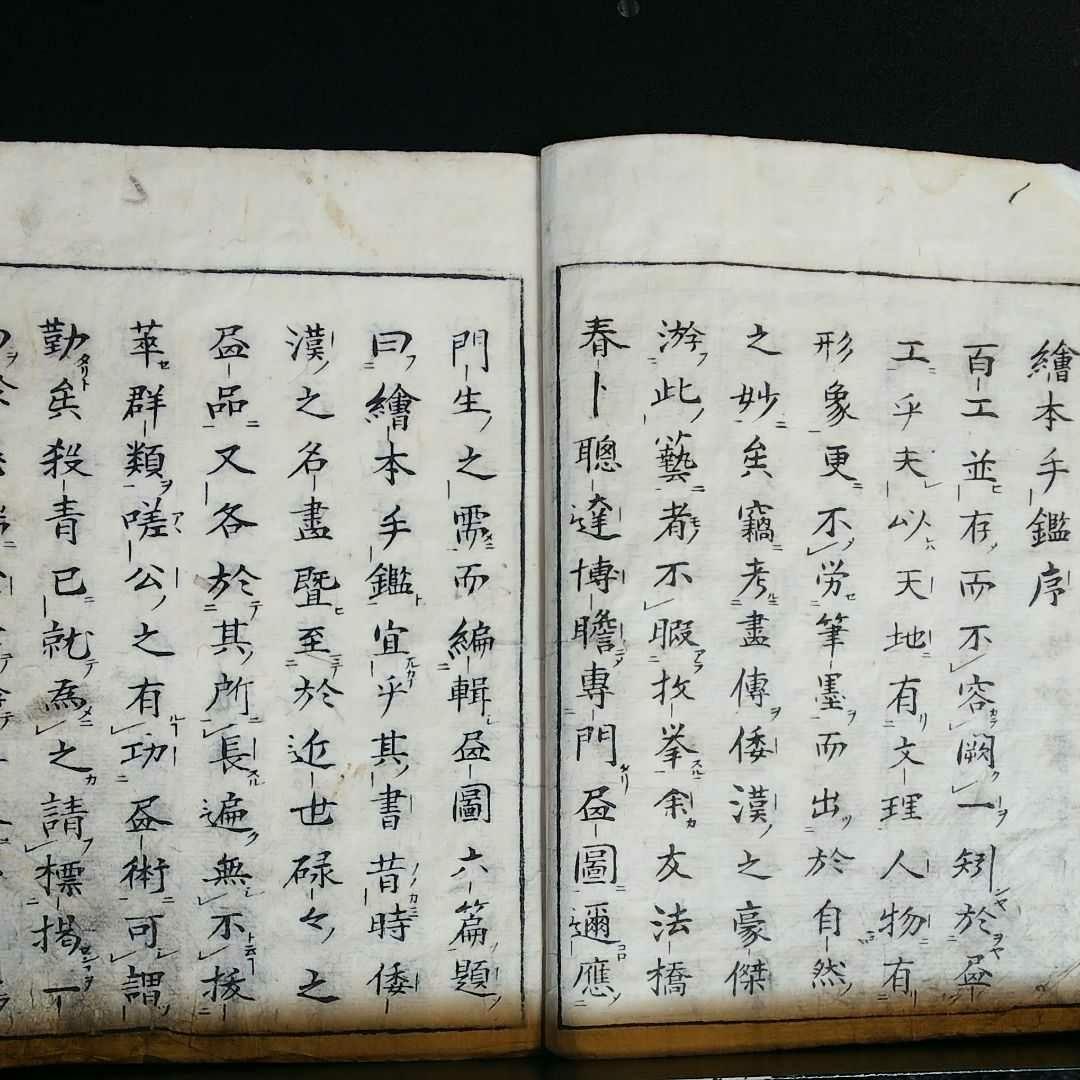 繪本手鑑序
百工並存而不容闕一矧於畫
工乎夫以天地有文理人物有
形象更不労筆墨而出於自然
之妙矣竊考畫傳倭漢之豪傑
游此藝者不暇枚挙余友法橋
春卜聰達博瞻專門畫圖邇應
門生之需而編輯畫圖六篇題
曰繪本手鑑宜乎其書昔時倭
漢之名畫暨至於近世碌々之
畫品又各於其所長遍無不援
萃群類嗟公之有功畫術可謂
勤矣殺青已就為之請標揭一